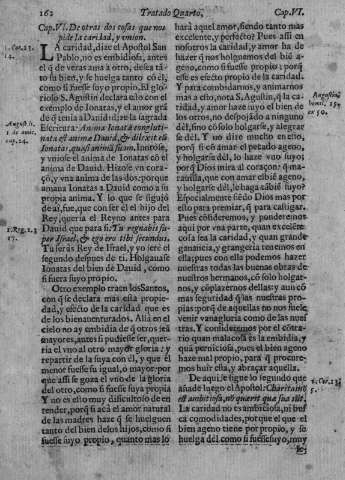 162 Tratado Quarto, Cap. VI.
Cap. VI. De otras dos cosas que nos
pide la caridad, y vnion.
LA caridad, dize el Apostol San
Pablo, no es embidiosa, antes
el q̃ de veras ama a otro, desea tã-
to su bien, y se huelga tanto cõ el,
como si fuesse suyo propio. El glo-
rioso S. Agustin declara esto con el
exemplo de Ionatas, y el amor grãde
q̃ tenia a Dauid: dize la sagrada
Escritura: Anima Ionatæ conglutinata
est animæ Dauid, & dilexit eũ
Ionatas quasi animã suam. Iuntose,
y vniose el anima de Ionatas cõ el
anima de Dauid. Hizose vn coraçõ,
y vna anima de las dos: porque
amaua Ionatas a Dauid como a su
propia anima. Y lo que se siguio
de aí, fue, que con ser el el hijo del
Rey, queria el Reyno antes para
Dauid que para si: Tu regnabis super
Israel, & ego ero tibi secundus.
Tu seràs Rey de Israel, y yo serè el
segundo despues de ti. Holgauase
Ionatas del bien de Dauid, como
si fuera suyo propio.
Otro exemplo traen los Santos,
con q̃ se declara mas esta propiedad,
y efecto de la caridad que es
de los bienauenturados. Allà en el
cielo no ay embidia de q̃ otros seã
mayores, antes si pudiesse ser, querria
el vno al otro mayor gloria: y
repartir de la suya con el, y que el
menor fuesse su igual, o mayor: porque
assi se goza el vno de la gloria
del otro, como si fuesse suya propia
Y no es esto muy dificultoso de entender,
porq̃ si acà el amor natural
de las madres haze q̃ se huelguen
tanto del bien de sus hijos, como si
fuesse suyo propio, quanto mas lo
harà aquel amor, siendo tanto mas
excelente, y perfecto? Pues assi en
nosotros la caridad y amor ha de
hazer q̃ nos holguemos del biẽ ageno,
como si fuesse propio: porq̃
esse es efecto propio de la caridad.
Y para combidarnos, y animarnos
mas a esto, nota S. Agustin, q̃ la caridad,
y amor haze suyo el bien de
los otros, no despojãdo a ninguno
dèl, sino cõ solo holgarse, y alegrarse
dèl. Y no dize mucho en ello,
porq̃ si como al amar el pecado ageno, y
holgarse dèl, lo haze vno suyo;
porq̃ Dios mira al coraçon: q̃ marauilla,
que con amar el biẽ ageno, y
holgarse dèl, le haga tãbiẽ suyo?
Especialmẽte siẽdo Dios mas por
ello para premiar, q̃ para castigar.
Pues cõsideremos, y ponderemos
aqui por vna parte, quan excelẽte
cosa sea la caridad, y quan grande
ganancia, y grangeria tenemos en
ella; pues con ella podemos hazer
nuestras todas las buenas obras de
nuestros hermanos, cõ solo holgarnos,
y cõplazernos dellas: y aun cõ
mas seguridad q̃ las nuestras propias:
porq̃ de aquellas no nos suele
venir vanagloria como de las nuestras.
Y consideremos por el cõtrario
quan mala cosa es la embidia, y
quã perniciosa, pues el bien ageno
haze mal propio, para q̃ procuremos
huir esta, y abraçar aquella.
De aqui se sigue lo segundo que
añade luego el Apostol: Charitas nõ
est ambitiosa, nõ quærit quæ sua sunt.
La caridad no es ambiciosa, ni busca
comodidades, porque el que el
bien ageno tiene por propio, y se
huelga dèl como si fuesse suyo, muy